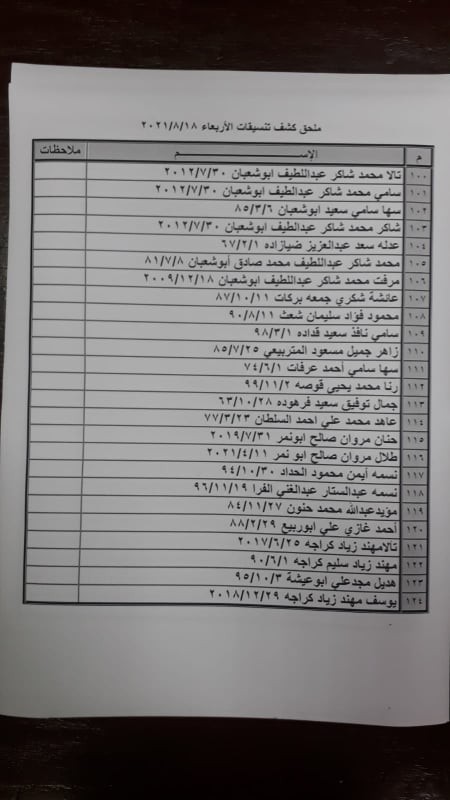 ملحق كشف تنسيقات الأربعاء ٢٠٢١/٨/١٨
م الإســـــم ملاحظات
١٠٠ تالا محمد شاكر عبداللطيف ابوشعبان ٢٠١٢/٧/٣٠
١٠١ سامي محمد شاكر عبدالطيف ابوشعبان ٢٠١٢/٧/٣٠
١٠٢ سها سامي سعيد ابوشعبان ٨٥/٣/٦
١٠٣ شاكر محمد شاكر عبدالطيف ابوشعبان ٢٠١٢/٧/٣٠
١٠٤ عدله سعد عبدالعزيز ضبازاده ٦٧/٢/١
١٠٥ محمد شاكر عبداللطيف محمد صادق أبوشعبان ٨١/٧/٨
١٠٦ مرفت محمد شاكر عبداللطيف ابوشعبان ٢٠٠٩/١٢/١٨
١٠٧ عائشة شكري جمعه بركات ٨٧/١٠/١١
١٠٨ محمود فؤاد سليمان شعث ٩٠/٨/١١
١٠٩ سامي نافذ سعيد قداده ٩٨/٣/١
١١٠ زاهر جميل مسعود المتربيعي ٨٥/٧/٢٥
١١١ سها سامي أحمد عرفات ٧٤/٦/١
١١٢ رنا محمد يحيى قوصه ٩٩/١١/٢
١١٣ جمال توفيق سعيد فرهوده ٦٣/١٠/٢٨
١١٤ عاهد محمد علي احمد السلطان ٧٧/٣/٢٣
١١٥ حنان مروان صالح ابونمر ٢٠١٩/٧/٣١
١١٦ طلال مروان صالح ابو نمر ٢٠٢١/٤/١١
١١٧ نسمه أيمن محمود الحداد ٩٤/١٠/٣٠
١١٨ نسمه عبدالستار عبدالغني الفرا ٩٦/١١/١٩
١١٩ مؤيدعبدالله محمد حنون ٨٤/١١/٢٧
١٢٠ أحمد غازي علي ابوربيع ٨٨/٢/٢٩
١٢١ تالامهند زياد كراجه ٢٠١٧/٦/٢٥
١٢٢ مهند زياد سليم كراجه ٩٠/٦/١
١٢٣ هديل مجدعلي ابوعيشة ٩٥/١٠/٣
١٢٤ يوسف مهند زياد كراجه ٢٠١٨/١٢/٢٩